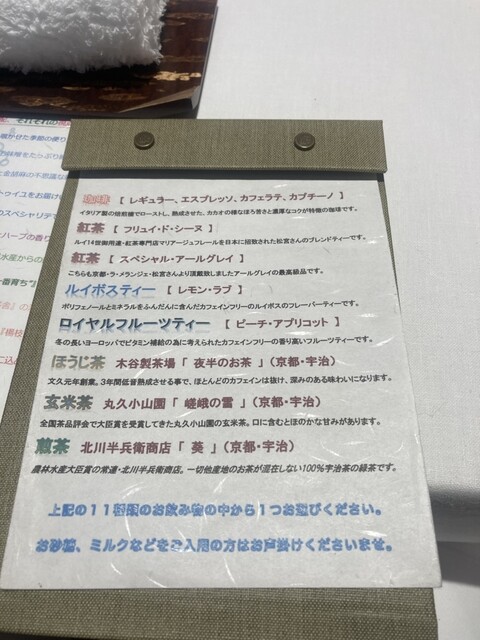 珈琲 【 レギュラー、エスプレッソ、カフェラテ、カプチーノ 】
イタリア製の焙煎機でローストし、熟成させた、カカオの様なほろ苦さと濃厚なコクが特徴の珈琲です。
紅茶 【 フリュイ・ド・シーヌ 】
ルイ14世御用達・紅茶専門店マリアージュフレールを日本に招致された松宮さんのブレンドティーです。
紅茶 【 スペシャル・アールグレイ 】
こちらも京都・ラ・メランジェ・松宮さんより頂戴致しましたアールグレイの最高級品です。
ルイボスティー 【 レモン・ラブ 】
ポリフェノールとミネラルをふんだんに含んだカフェインフリーのルイボスのフレーバーティーです。
ロイヤルフルーツティー 【 ピーチ・アプリコット 】
冬の長いヨーロッパでビタミン補給の為に考えられたカフェインフリーの香り高いフルーツティーです。
ほうじ茶 木谷製茶場 「 夜半のお茶 」（京都・宇治）
文久元年創業。3年間低音熟成させる事で、ほとんどのカフェインは抜け、深みのある味わいになります。
玄米茶 丸久小山園 「 嵯峨の雪 」（京都・宇治）
全国茶品評会で大臣賞を受賞してきた丸久小山園の玄米茶。口に含むとほのかな甘みがあります。
煎茶 北川半兵衛商店 「 葵 」（京都・宇治）
農林水産大臣賞の常連・北川半兵衛商店。一切他産地のお茶が混在しない100%宇治茶の緑茶です。
上記の11種類のお飲み物の中から1つお選びください。
お砂糖、ミルクなどをご入用の方はお声掛けくださいませ。